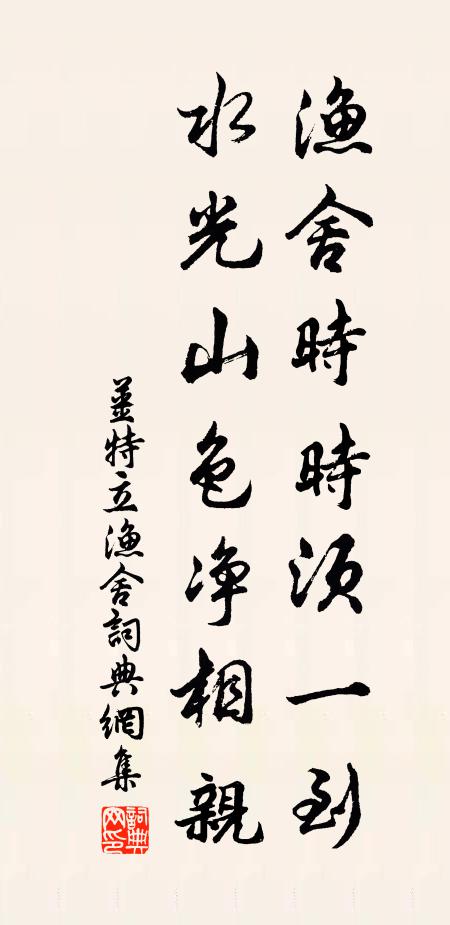 渔舍時時須一到
水光山色净相親
薑特立渔舍詞典網集
詞典網印